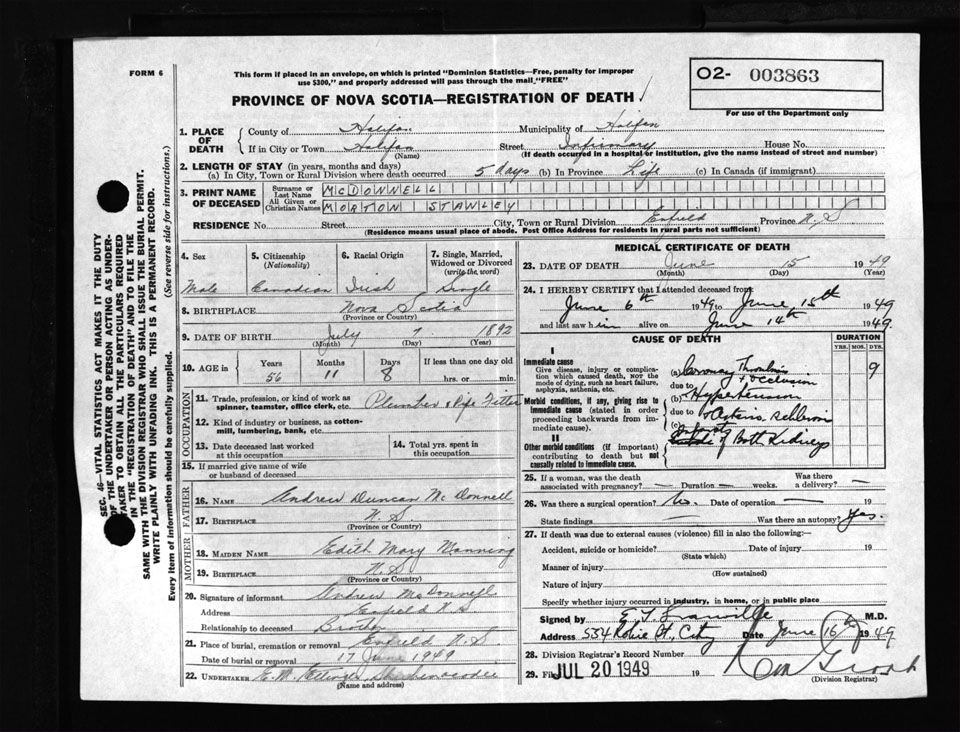 FORM 6
This form if placed in an envelope, on which is printed "Dominion Statistics—Free, penalty for improper
use $300," and properly addressed will pass through the mail "FREE"
O2- 003863
For use of the Department only
PROVINCE OF NOVA SCOTIA—REGISTRATION OF DEATH
1. PLACE OF DEATH
County of Halifax Municipality of Halifax
If in City or Town Halifax Street Infirmary House No.
(Name) (If death occurred in a hospital or institution, give the name instead of street and number)
2. LENGTH OF STAY (in years, months and days)
(a) In City, Town or Rural Division where death occurred 5 days (b) In Province Life (c) In Canada (if immigrant)
3. PRINT NAME OF DECEASED
Surname or Last Name MCDONNELL
All Given or Christian Names MORTON STANLEY
RESIDENCE No. Street City, Town or Rural Division Enfield Province N.S
(Residence means usual place of abode. Post Office Address for residents in rural parts not sufficient)
4. Sex 5. Citizenship (Nationality) 6. Racial Origin 7. Single, Married, Widowed or Divorced (write the word)
Male Canadian Irish Single
8. BIRTHPLACE Nova Scotia
(Province or Country)
9. DATE OF BIRTH July 7 1892
(Month) (Day) (Year)
10. AGE in Years Months Days If less than one day old
56 11 8 hrs. or min.
OCCUPATION
11. Trade, profession, or kind of work as
spinner, teamster, office clerk, etc. Plumber & Pipe Fitter
12. Kind of industry or business, as cotton-
mill, lumbering, bank, etc.
13. Date deceased last worked at this occupation 14. Total yrs. spent in this occupation
15. If married give name of wife
or husband of deceased
FATHER
16. NAME Andrew Duncan McDonnell
17. BIRTHPLACE N.S
(Province or Country)
MOTHER
18. MAIDEN NAME Edith Mary Manning
19. BIRTHPLACE N.S
(Province or Country)
20. Signature of informant Andrew McDonnell
Address Enfield N.S
Relationship to deceased Brother
21. Place of burial, cremation or removal Enfield N.S
Date of burial or removal 17 June 1949
22. UNDERTAKER E.M. Ettinger Shubenacadie
(Name and address)
MEDICAL CERTIFICATE OF DEATH
23. DATE OF DEATH June 15 1949
(Month) (Day) (Year)
24. I HEREBY CERTIFY that I attended deceased from
June 6th 1949 to June 15th 1949
and last saw him alive on June 14th 1949.
CAUSE OF DEATH DURATION
YRS. MOS. DYS.
I
Immediate cause
Give disease, injury or complica-
tion which caused death, not the
mode of dying, such as heart failure,
asphyxia, asthenia, etc.
(a) Coronary Thrombosis 9
& occlusion
due to
(b) Hypertension
Morbid conditions, if any, giving rise to
immediate cause (stated in order
proceeding backwards from im-
mediate cause).
due to
(c)
II
Other morbid conditions (if important)
contributing to death but not
causally related to immediate cause.
of Both Kidneys
25. If a woman, was the death
associated with pregnancy? — Duration — weeks. Was there a delivery? —
26. Was there a surgical operation? No. Date of operation — 19
State findings — Was there an autopsy? Yes.
27. If death was due to external causes (violence) fill in also the following:
Accident, suicide or homicide? Date of injury 19
(State which)
Manner of injury
(How sustained)
Nature of injury
Specify whether injury occurred in industry, in home, or in public place
Signed by M.D.
Address 534 Robie St, City Date June 16th 1949
28. Division Registrar's Record Number
29. Filed JUL 20 1949 19
(Division Registrar)
SEC. 46—VITAL STATISTICS ACT MAKES IT THE DUTY
OF THE UNDERTAKER OR PERSON ACTING AS UNDER-
TAKER TO OBTAIN ALL THE PARTICULARS REQUIRED
IN THE "REGISTRATION OF DEATH" AND TO FILE THE
SAME WITH THE DIVISION REGISTRAR WHO SHALL ISSUE THE BURIAL PERMIT.
WRITE PLAINLY WITH UNFADING INK. THIS IS A PERMANENT RECORD.
Every item of information should be carefully supplied. (See reverse side for instructions.)